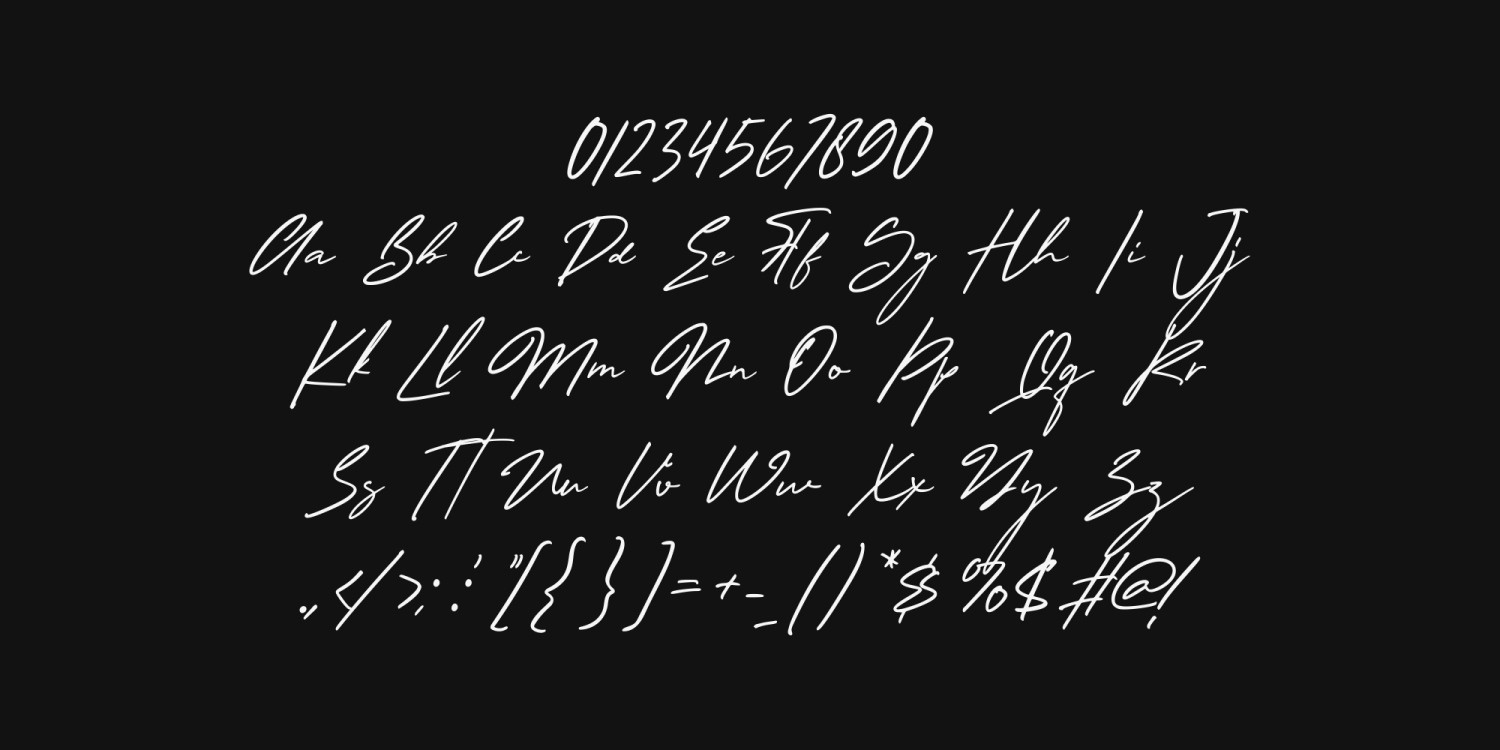 01234567890
Aa Bb Cc Dd Ee Ff Gg Hh Ii Jj
Kk Ll Mm Nn Oo Pp Qq Rr
Ss Tt Uu Vv Ww Xx Yy Zz
.,</>;:'"[{}]=+-_()*&%$#@!